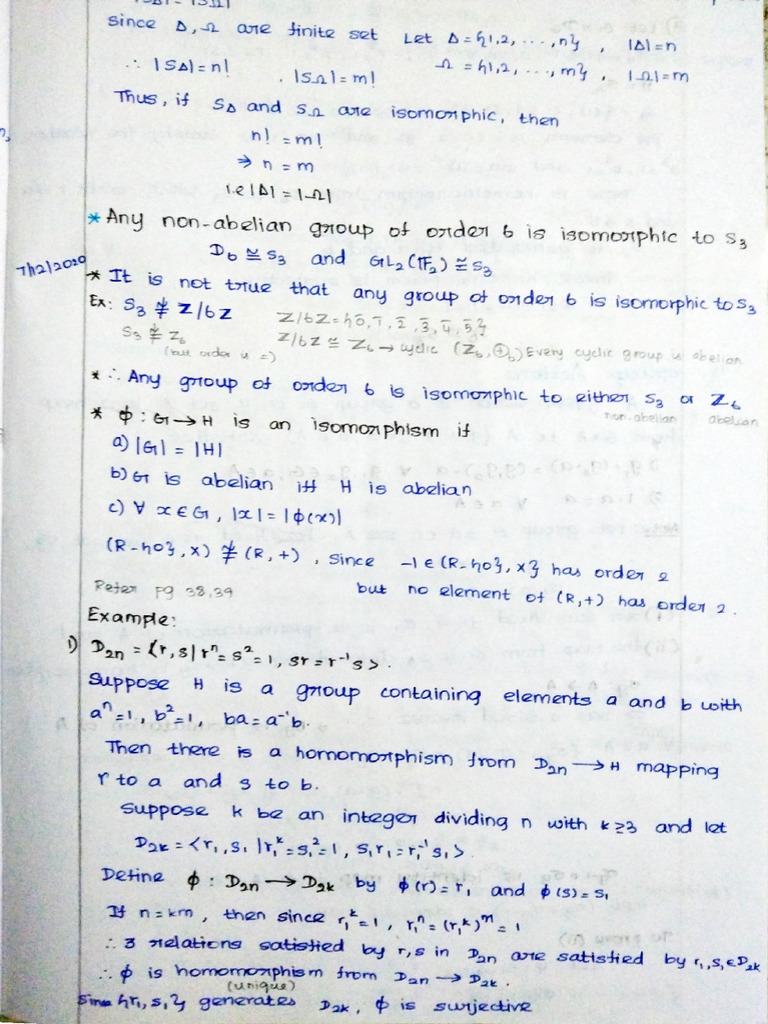 |SΔ| = |SΩ|
since Δ, Ω are finite set Let Δ = {1,2, ..., n} , |Δ| = n
∴ |SΔ| = n! , |SΩ| = m! Ω = {1,2, ..., m} , |Ω| = m
Thus, if SΔ and SΩ are isomorphic, then
n! = m!
⇒ n = m
i.e |Δ| = |Ω|
* Any non-abelian group of order 6 is isomorphic to S₃
D₆ ≅ S₃ and GL₂(𝔽₂) ≅ S₃
7/12/2020
* It is not true that any group of order 6 is isomorphic to S₃
Ex: S₃ ≇ Z/6Z Z/6Z = {0̄, 1̄, 2̄, 3̄, 4̄, 5̄}
S₃ ≇ Z₆ Z/6Z ≅ Z₆ → cyclic (Z₆, ⊕₆) Every cyclic group is abelian
(but order is =)
* ∴ Any group of order 6 is isomorphic to either S₃ or Z₆
non-abelian abelian
* ϕ : G → H is an isomorphism if
a) |G| = |H|
b) G is abelian iff H is abelian
c) ∀ x ∈ G, |x| = |ϕ(x)|
(R-{0}, ×) ≇ (R, +) , since -1 ∈ (R-{0}, ×} has order 2
but no element of (R, +) has order 2.
Refer pg 38,39
Example:
1) D₂ₙ = <r, s | rⁿ = s² = 1, sr = r⁻¹s>.
Suppose H is a group containing elements a and b with
aⁿ = 1, b² = 1, ba = a⁻¹b.
Then there is a homomorphism from D₂ₙ → H mapping
r to a and s to b.
Suppose k be an integer dividing n with k ≥ 3 and let
D₂ₖ = <r₁, s₁ | r₁ᵏ = s₁² = 1, s₁r₁ = r₁⁻¹s₁>
Define ϕ : D₂ₙ → D₂ₖ by ϕ(r) = r₁ and ϕ(s) = s₁
If n = km, then since r₁ᵏ = 1, r₁ⁿ = (r₁ᵏ)ᵐ = 1
∴ 3 relations satisfied by r, s in D₂ₙ are satisfied by r₁, s₁ ∈ D₂ₖ
∴ ϕ is homomorphism from D₂ₙ → D₂ₖ.
(unique)
Since {r₁, s₁} generates D₂ₖ, ϕ is surjective